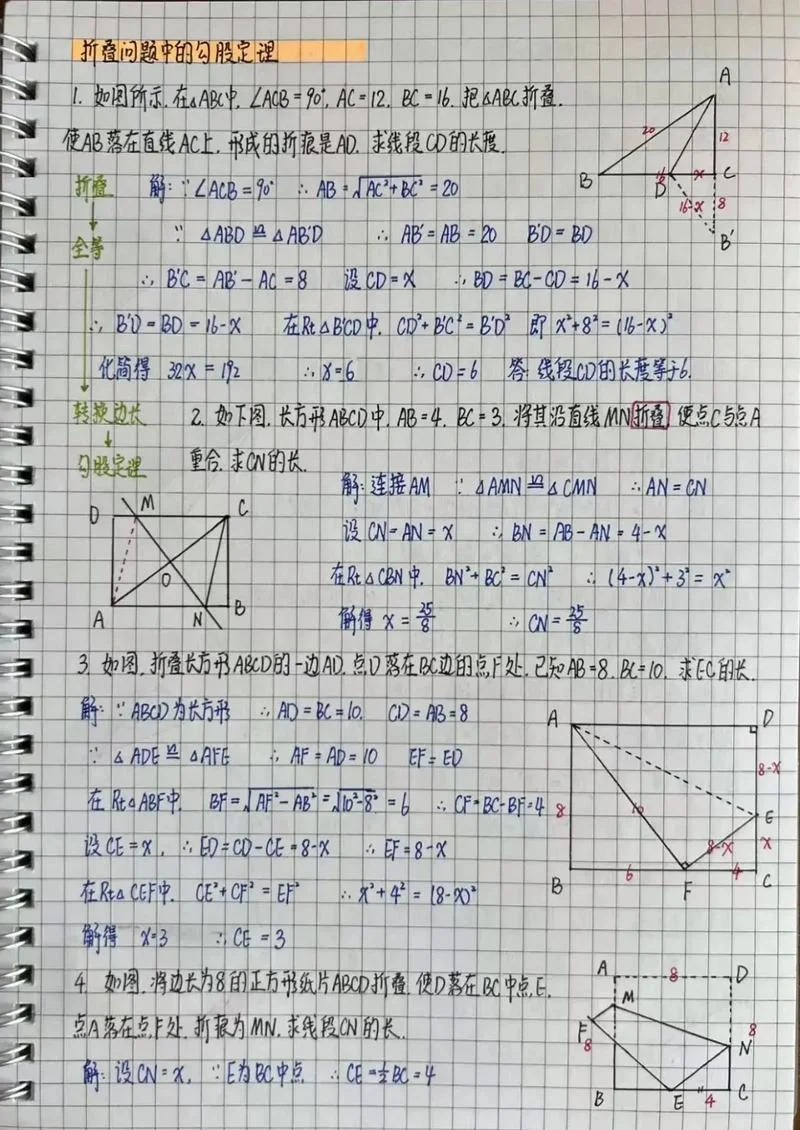 折叠问题中的勾股定理
1. 如图所示.在△ABC中. ∠ACB=90°, AC=12. BC=16. 把△ABC折叠.
使AB落在直线AC上. 形成的折痕是AD. 求线段CD的长度.
折叠
解: ∵∠ACB=90° ∴AB=√AC²+BC²=20
全等
∵ △ABD≌△AB'D ∴ AB'=AB=20 B'D=BD
∴ B'C=AB'-AC=8 设CD=x ∴BD=BC-CD=16-x
∴ B'D=BD=16-x 在Rt△B'CD中. CD²+B'C²=B'D² 即 x²+8²=(16-x)²
化简得 32x=192 ∴x=6 ∴CD=6 答:线段CD的长度等于6.
转换边长
勾股定理
2. 如下图. 长方形ABCD中. AB=4. BC=3. 将其沿直线MN折叠 使点C与点A
重合.求CN的长.
解:连接AM ∵ △AMN≌△CMN ∴AN=CN
设 CN=AN=x ∴ BN=AB-AN=4-x
在Rt△CBN中. BN²+BC²=CN² ∴ (4-x)²+3²=x²
解得 x=25/8 ∴CN=25/8
3. 如图. 折叠长方形ABCD的一边AD. 点D落在BC边的点F处. 已知AB=8. BC=10. 求EC的长.
解: ∵ABCD为长方形 ∴AD=BC=10. CD=AB=8
∵ △ADE≌△AFE ∴ AF=AD=10 EF=ED
在 Rt△ABF中. BF=√AF²-AB²=√10²-8²=6 ∴CF=BC-BF=4
设CE=x, ∴ED=CD-CE=8-x ∴EF=8-x
在Rt△CEF中. CE²+CF²=EF² ∴x²+4²=(8-x)²
解得 x=3 ∴CE=3
4. 如图. 将边长为8的正方形纸片ABCD折叠. 使D落在BC中点E.
点A落在点F处. 折痕为MN. 求线段CN的长.
解:设CN=x. ∵E为BC中点 ∴CE=½BC=4
A
20
12
B
16
D
x
C
16-x
8
B'
D
M
C
O
A
N
B
A
D
8-x
8
10
E
8-x
x
B
6
F
4
C
A
8
D
M
F
8
8
N
B
E
4
C